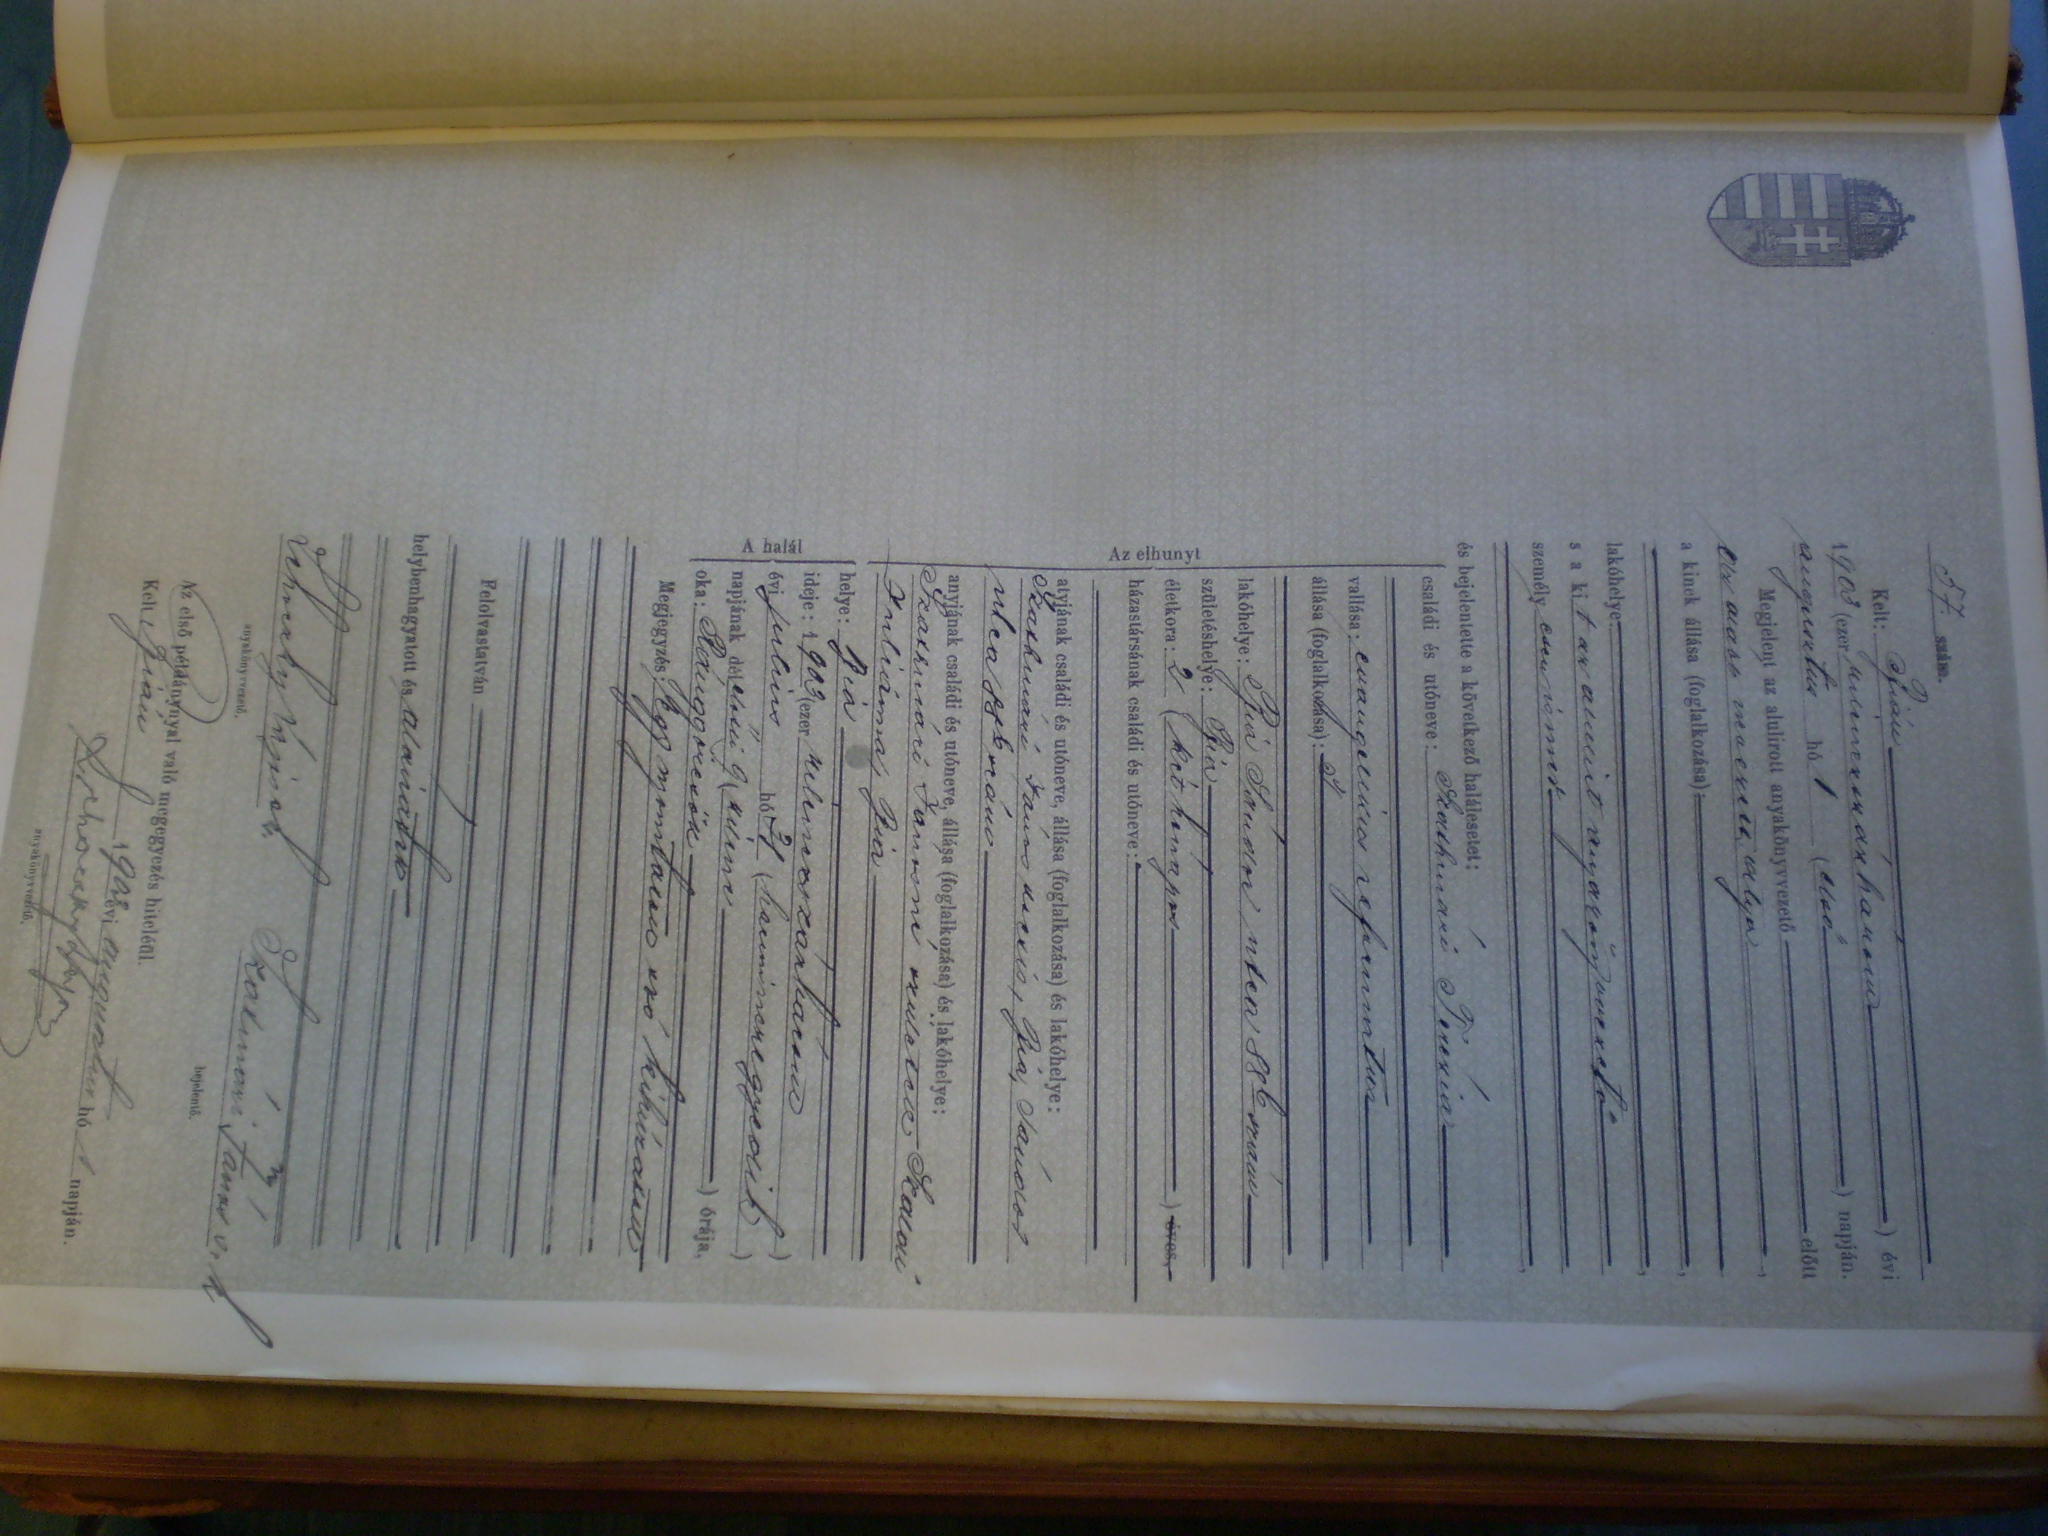 57. szám.
Kelt: Bián
1903 (ezer kilenczszázhárom) évi
augusztus hó 1 (első) napján.
Megjelent az alulirott anyakönyvvezető előtt
az alább nevezett atya,
a kinek állása (foglalkozása)
lakóhelye:
s a kit az alulirt anyakönyvvezető
személyesen ismer
és bejelentette a következő halálesetet:
Az elhunyt
családi és utóneve: Szakmári Terézia
vallása: evangelicus reformatus
állása (foglalkozása):
lakóhelye: Biá Sándor utca 226 szám
születéshelye: Bia
életkora: 2 (két hónapos) éves,
házastársának családi és utóneve:
atyjának családi és utóneve, állása (foglalkozása) és lakóhelye:
Szakmári János Biá, Sándor
utca szám
anyjának családi és utóneve, állása (foglalkozása) és lakóhelye:
Szakmári Jánosné született
Juliánna, Bia
A halál
helye: Bia
ideje: 1903 (ezer kilenczszázhárom)
évi julius hó 31 (harminczegyedik)
napjának délelőtt 9 (kilenc) órája,
oka: Ránggörcsök
Megjegyzés: Egy nyomtatott szó kihúzatott
Felolvastatván
helybenhagyatott és aláiratott
anyakönyvvezető.
Szakmári János
bejelentő.
Az első példánynyal való megegyezés hiteléül.
Kelt Bián 1903 évi augusztus hó 1 napján.
anyakönyvvezető.